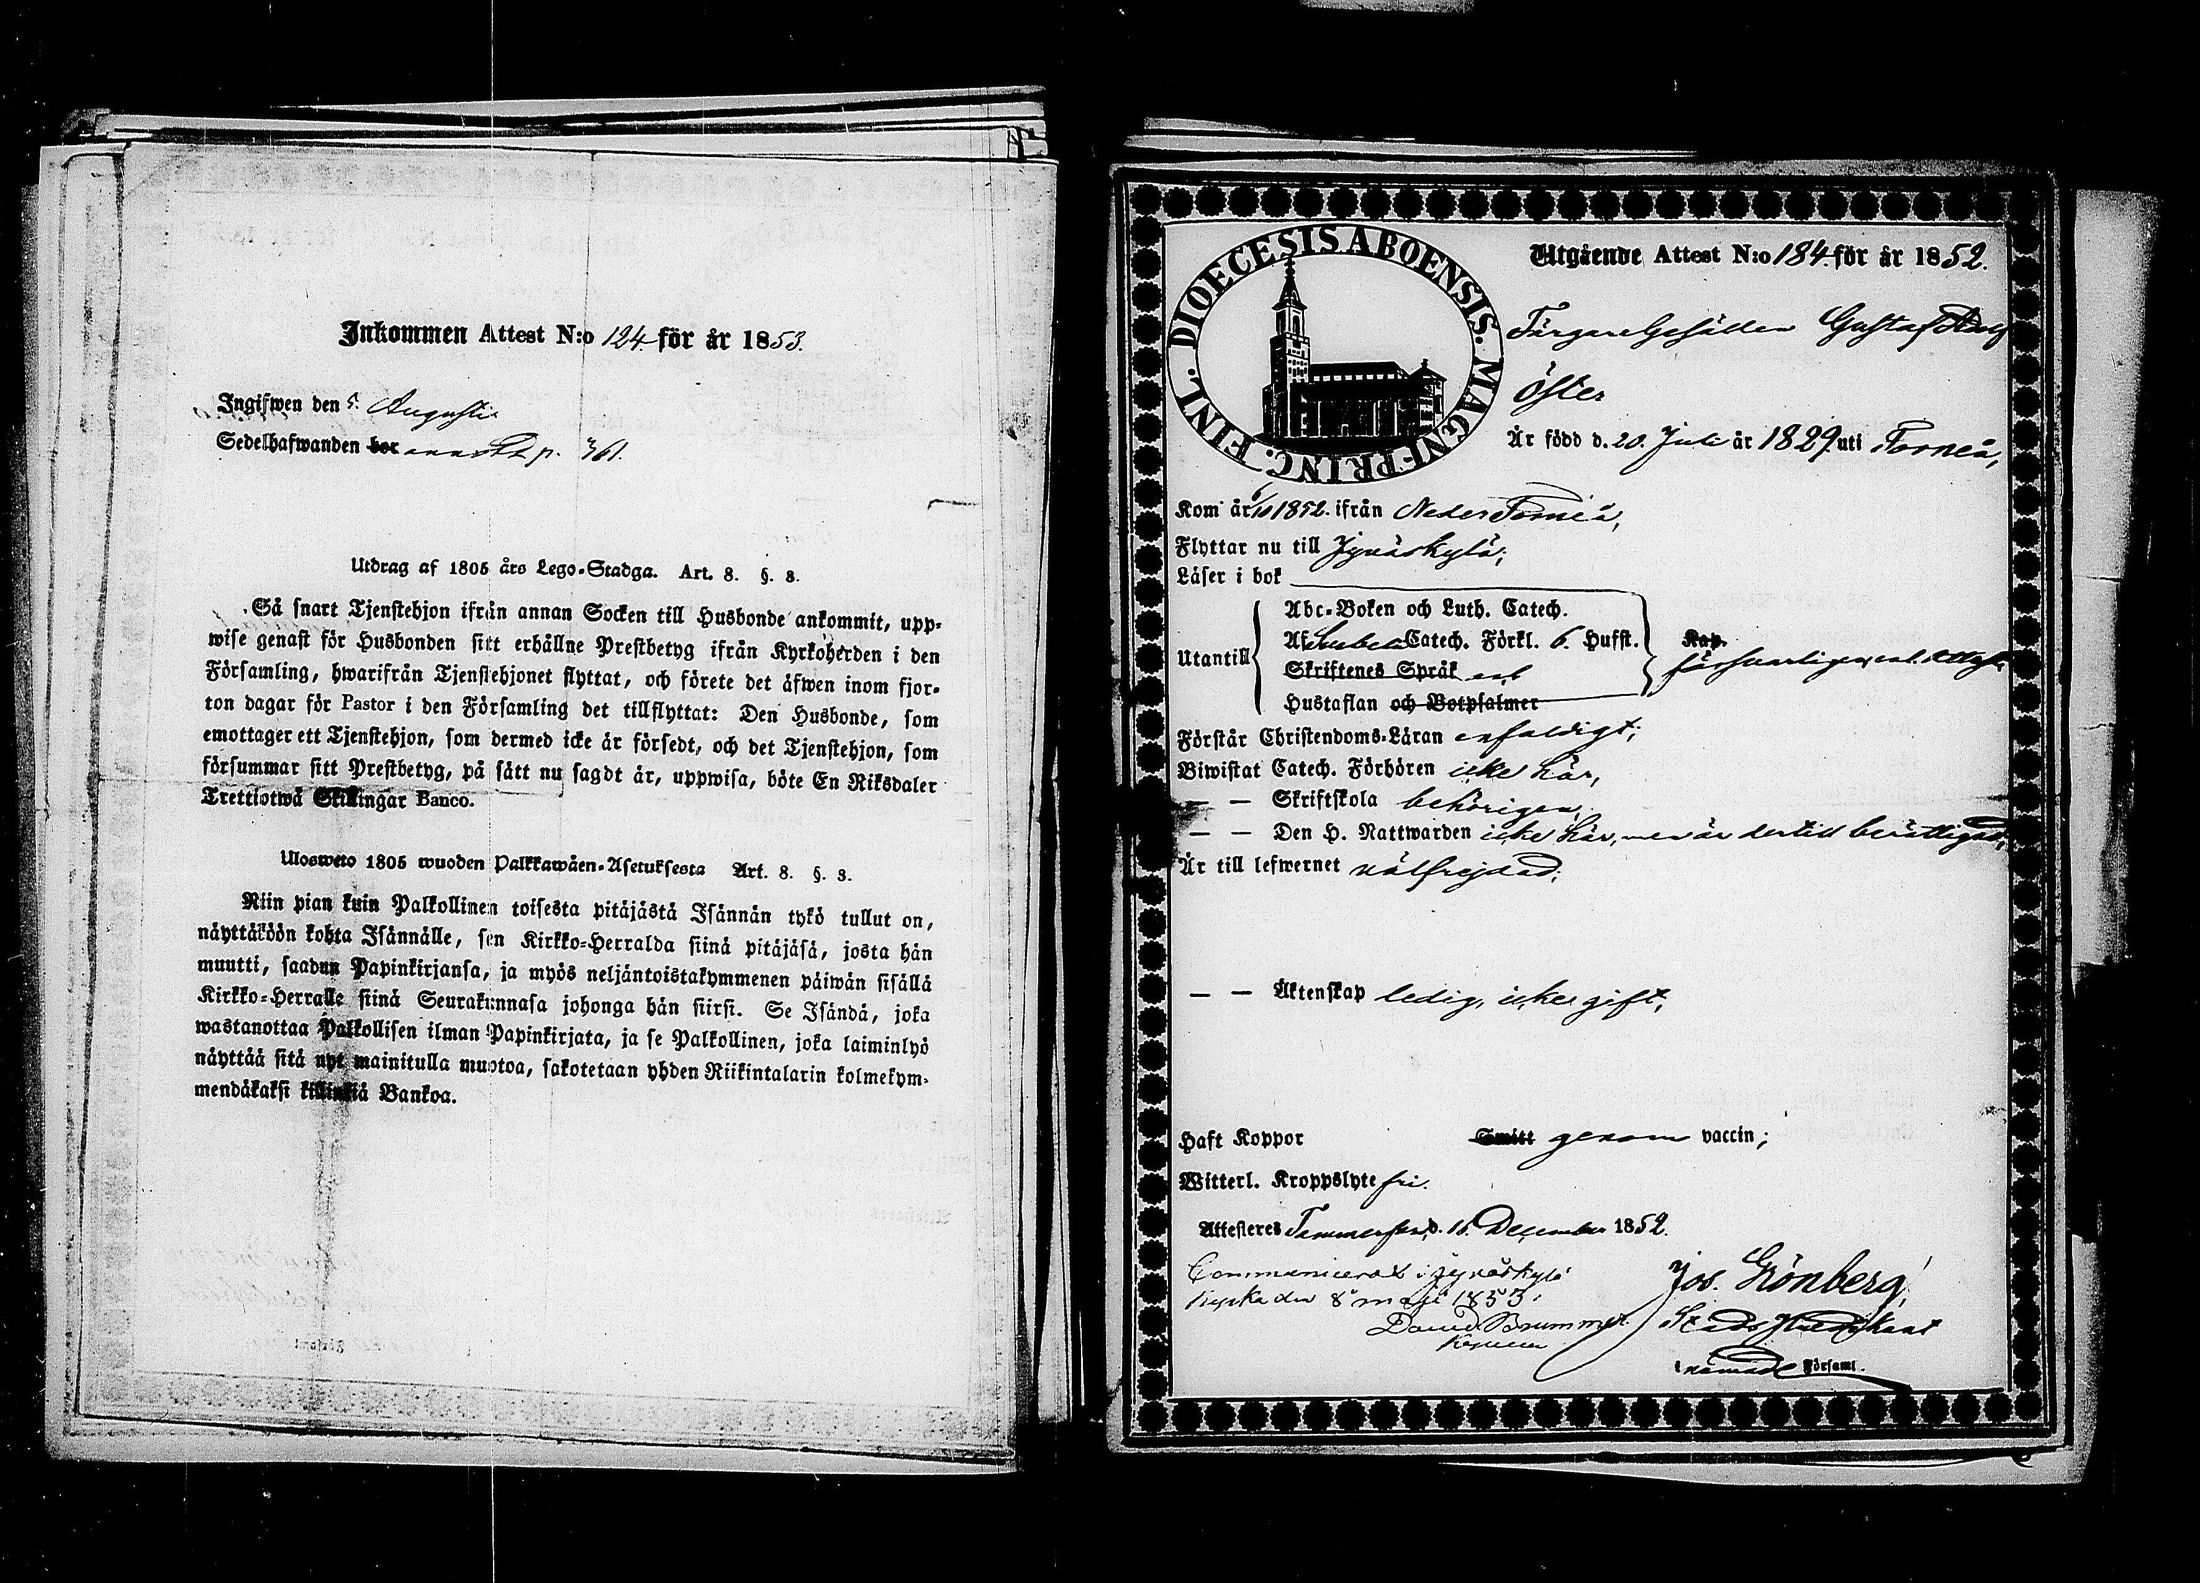 Inkommen Attest N:o 124. för år 1853.
Ingifwen den 5. Augusti
Sedelhafwanden bor p. 361.
Utdrag af 1805 års Lego-Stadga. Art. 8. §. 8.
Så snart Tjenstehjon ifrån annan Socken till Husbonde ankommit, upp-
wise genast för Husbonden sitt erhållne Prestbetyg ifrån Kyrkoherden i den
Församling, hwarifrån Tjenstehjonet flyttat, och förete det äfwen inom fjor-
ton dagar för Pastor i den Församling det tillflyttat: Den Husbonde, som
emottager ett Tjenstehjon, som dermed icke är försedt, och det Tjenstehjon, som
försummar sitt Prestbetyg, på sätt nu sagdt är, uppwisa, böte En Riksdaler
Trettiotwå Skillingar Banco.
Ulosweto 1805 wuoden Palkkawäen-Asetuksesta Art. 8. §. 8.
Niin pian kuin Palkollinen toisesta pitäjästä Isännän tykö tullut on,
näyttäköön kohta Isännälle, sen Kirkko-Herralda siinä pitäjäsä, josta hän
muutti, saadun Papinkirjansa, ja myös neljäntoistakymmenen päiwän sisällä
Kirkko-Herralle siinä Seurakunnasa johonga hän siirsi. Se Isändä, joka
wastanottaa Palkollisen ilman Papinkirjata, ja se Palkollinen, joka laiminlyö
näyttää sitä nyt mainitulla muotoa, sakotetaan yhden Riikintalarin kolmekym-
mendäkaksi killinkiä Bankoa.
DIOECESIS ABOENSIS. MAGNI PRINC. FINL.
Utgående Attest N:o 184. för år 1852.
Färgare Gesällen Gustaf
Öster
Är född d. 20. Juli år 1829. uti Torneå,
Kom år 6/10 1852. ifrån Neder Torneå,
Flyttar nu till Jyväskylä;
Läser i bok
Abc-Boken och Luth. Catech.
Utantill Af Svebelii Catech. Förkl. 6. Hufst. Kap.
Skriftenes Språk enl. försvarligen, enl. attest,
Hustaflan och Botpsalmer
Förstår Christendoms-Läran enfaldigt;
Biwistat Catech. Förhören icke här,
— — Skriftskola behörigen,
— — Den H. Nattwarden icke här, men är dertill berättigad;
Är till lefwernet välfrejdad;
— — Äktenskap ledig, icke gift;
Haft Koppor Smitt genom vaccin;
Witterl. Kroppslyte fri.
Attesteres Tammerfors, d. 16. December 1852.
Communicerat i Jyväskylä
Kyrka den 8 maji 1853.
David Brummer
Jos. Grönberg
Stads Predikant
nämnde Församl.